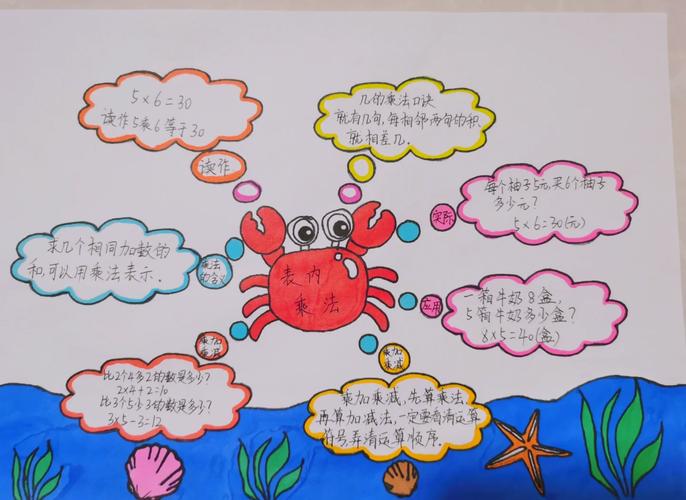 5×6=30
读作5乘6等于30
读作
几的乘法口诀
就有几句,每相邻两句的积
就相差几.
每个柚子5元,买6个柚子
多少元?
5×6=30(元)
实际
求几个相同加数的
和,可以用乘法表示.
乘法
的含义
表内
乘法
应用
一箱牛奶8盒,
5箱牛奶多少盒?
8×5=40(盒)
乘加
乘减
比2个4多2的数是多少?
2×4+2=10
比3个5少3的数是多少?
3×5-3=12
乘加
乘减
乘加乘减,先算乘法,
再算加减法,一定要看清运算
符号,弄清运算顺序.